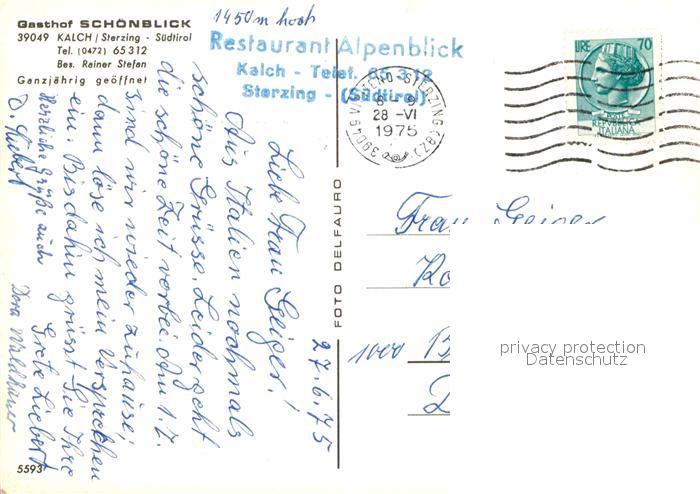 Gasthof SCHÖNBLICK
39049 KALCH / Sterzing - Südtirol
Tel. (0472) 65312
Bes. Rainer Stefan
Ganzjährig geöffnet
1450 m hoch
Restaurant Alpenblick
Kalch - Telef. 65 3 12
Sterzing - (Südtirol)
27.6.75
Liebe Frau Geiger!
Aus Italien nochmals
schöne Grüsse. Leider geht
die schöne Zeit vorbei. Am 1.7.
sind wir wieder zuhause,
dann löse ich mein Versprechen
ein. Bis dahin grüsst Sie Ihre
Grete Liebert
Herzliche Grüße auch
D. Liebert
Dora
5593
FOTO DELFAURO
39049 VIPITENO-STERZING (BZ)
28 -VI
1975
LIRE 70
REPUBBLICA
ITALIANA
Frau Geiger
1000 B
privacy protection
Datenschutz